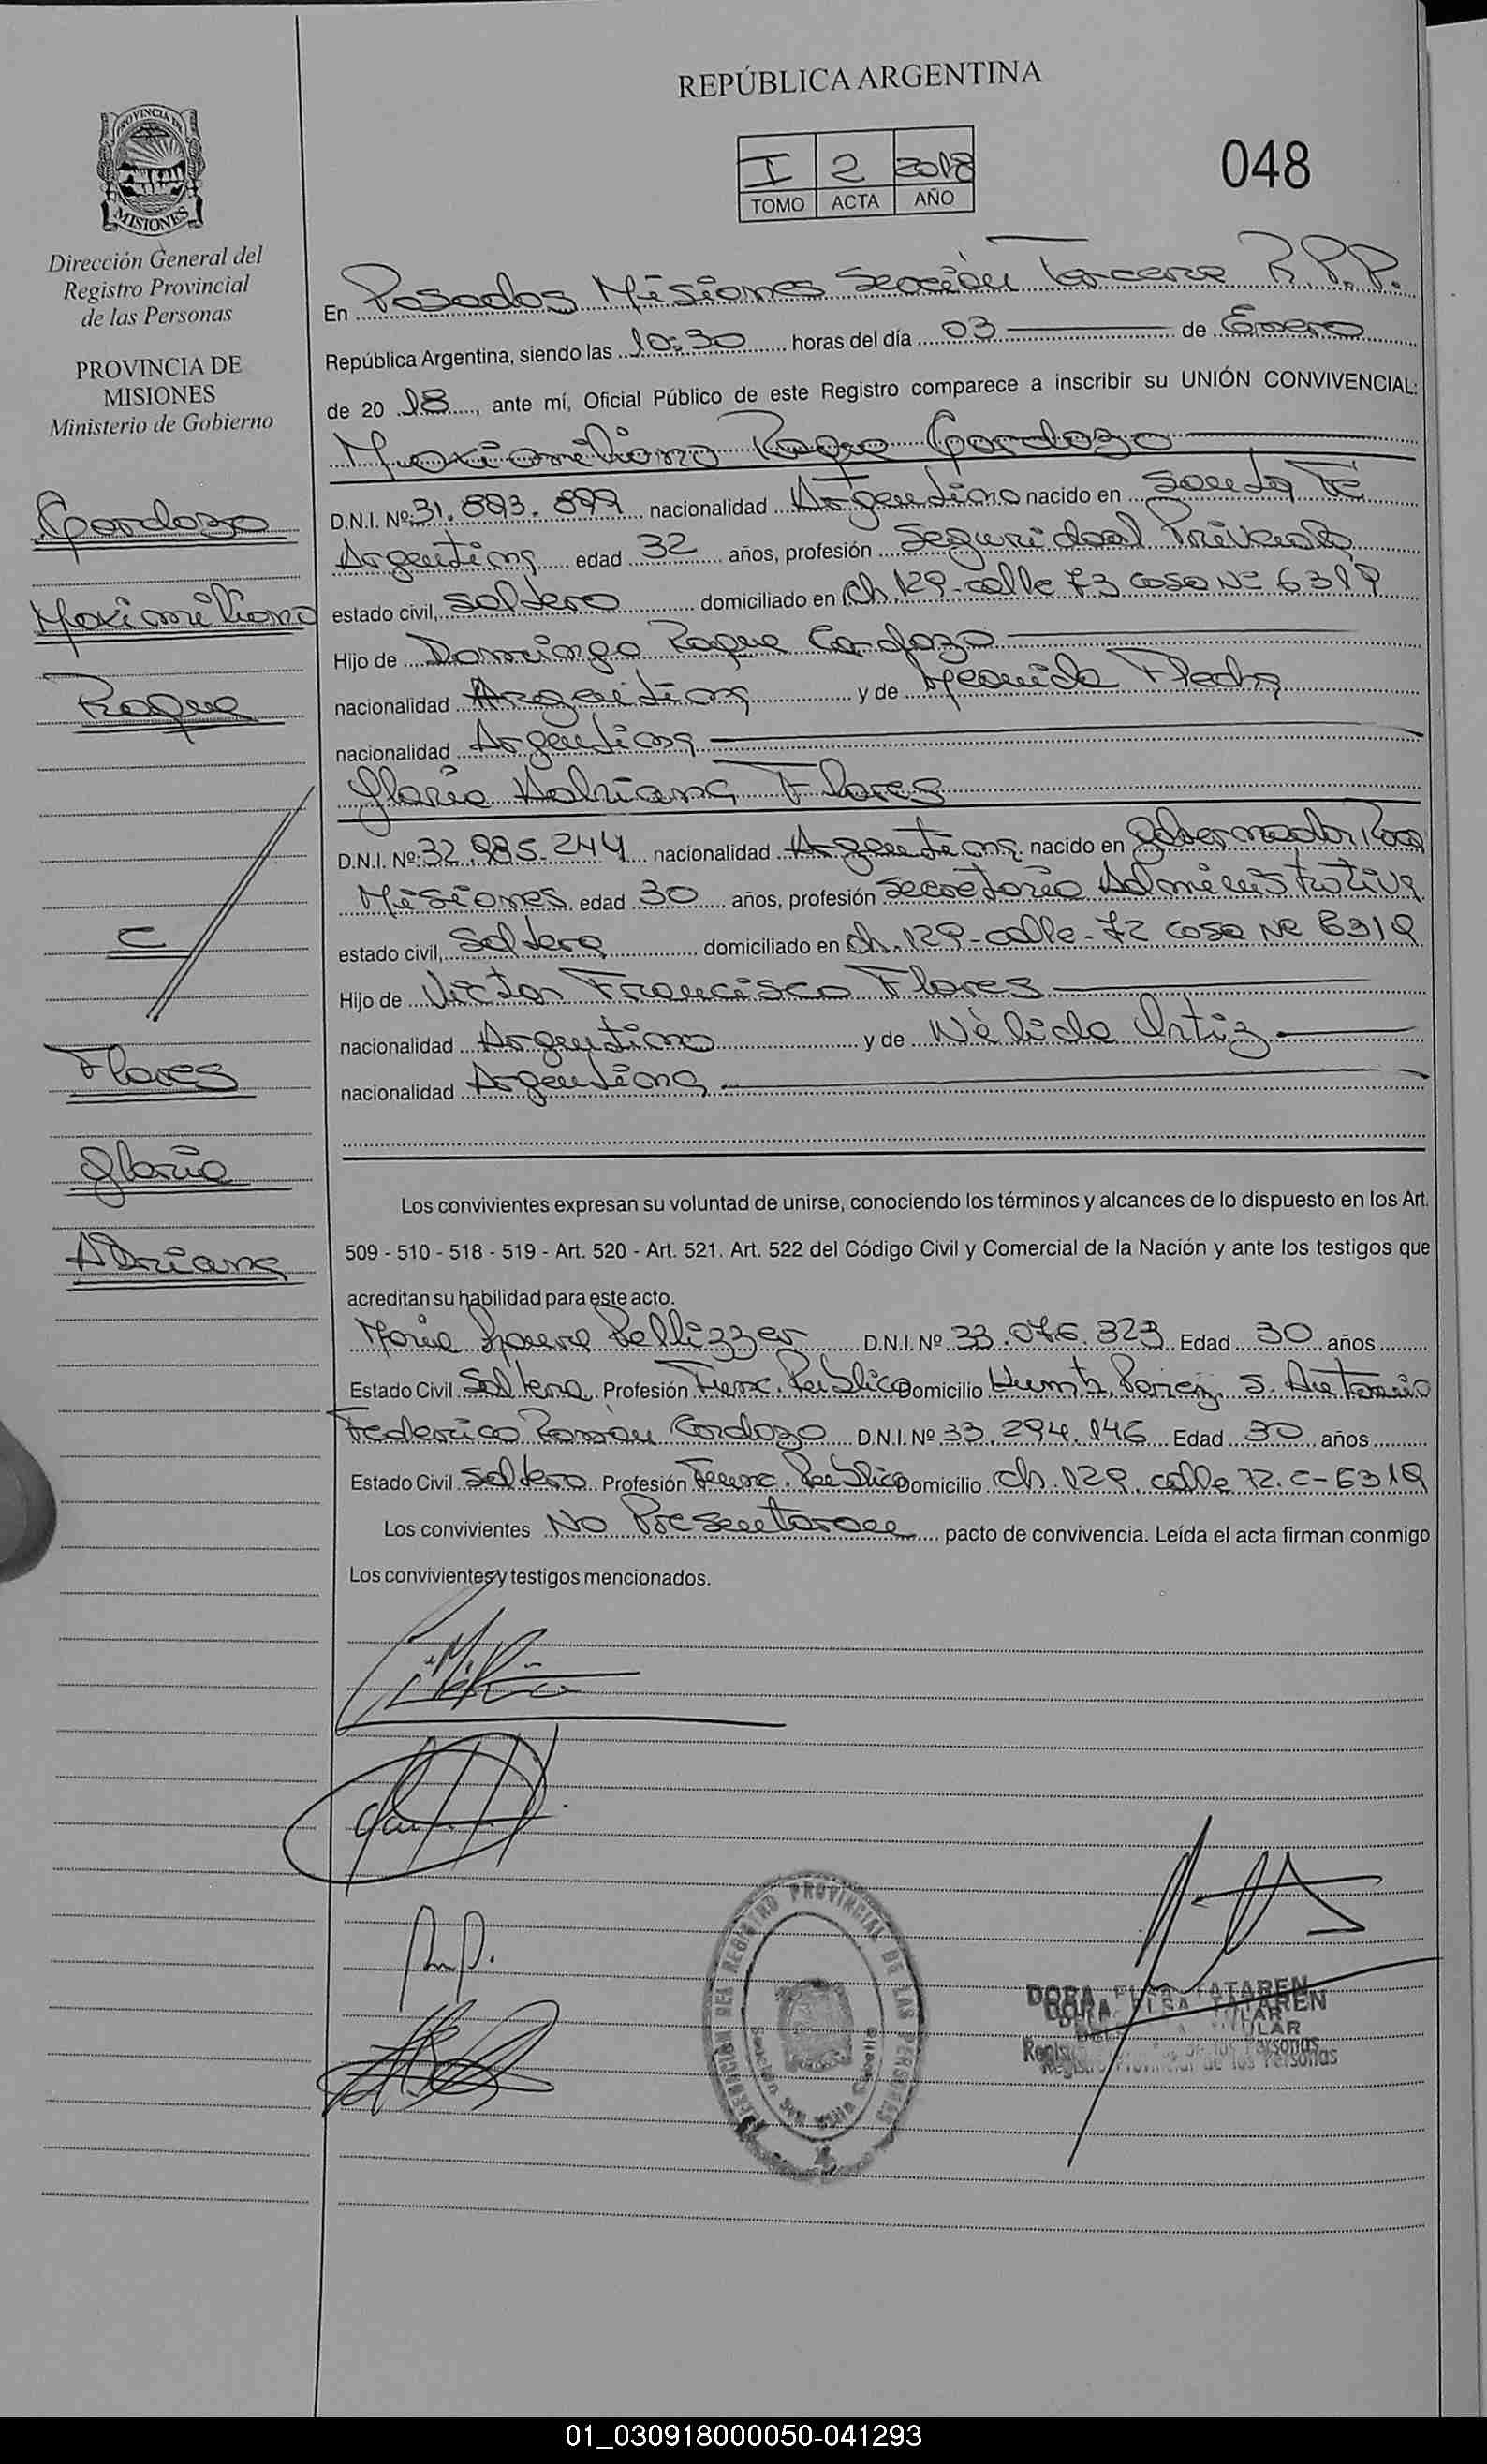 REPÚBLICA ARGENTINA
I 2 2018
TOMO ACTA AÑO
048
PROVINCIA DE
MISIONES
Dirección General del
Registro Provincial
de las Personas
PROVINCIA DE
MISIONES
Ministerio de Gobierno
Cardozo
Maximiliano
Roque
C
Flores
Gloria
Adriana
En Posadas Misiones Sección Tercera R.P.P.
República Argentina, siendo las 10:30 horas del día 03 de Enero
de 20 18, ante mí, Oficial Público de este Registro comparece a inscribir su UNIÓN CONVIVENCIAL:
Maximiliano Roque Cardozo
D.N.I. Nº 31.893.899 nacionalidad Argentino nacido en Santa Fé
Argentina edad 32 años, profesión Seguridad Privada
estado civil, Soltero domiciliado en Ch 129-calle 73 casa Nº 6319
Hijo de Domingo Roque Cardozo
nacionalidad Argentina y de
nacionalidad Argentina
Gloria Adriana Flores
D.N.I. Nº 32.985.244 nacionalidad Argentina nacido en Gobernador Roca
Misiones edad 30 años, profesión Secretaria Administrativa
estado civil, Soltera domiciliado en Ch.129-calle-72 casa Nº 6319
Hijo de Victor Francisco Flores
nacionalidad Argentino y de Nèlida Ortiz
nacionalidad Argentina
Los convivientes expresan su voluntad de unirse, conociendo los términos y alcances de lo dispuesto en los Art.
509 - 510 - 518 - 519 - Art. 520 - Art. 521. Art. 522 del Código Civil y Comercial de la Nación y ante los testigos que
acreditan su habilidad para este acto.
Maria Pellizzer D.N.I. Nº 33.076.323 Edad 30 años
Estado Civil Soltera Profesión Func. Publico Domicilio Humb. S. Antonio
Federico Ramón Cardozo D.N.I. Nº 33.294.146 Edad 30 años
Estado Civil Soltero Profesión Func. Publico Domicilio Ch.129. calle 72. C-6319
Los convivientes No Presentaron pacto de convivencia. Leída el acta firman conmigo
Los convivientes y testigos mencionados.
REGISTRO PROVINCIAL DE LAS PERSONAS
DORA ELSA TATAREN
Registro Provincial de las Personas
01_030918000050-041293